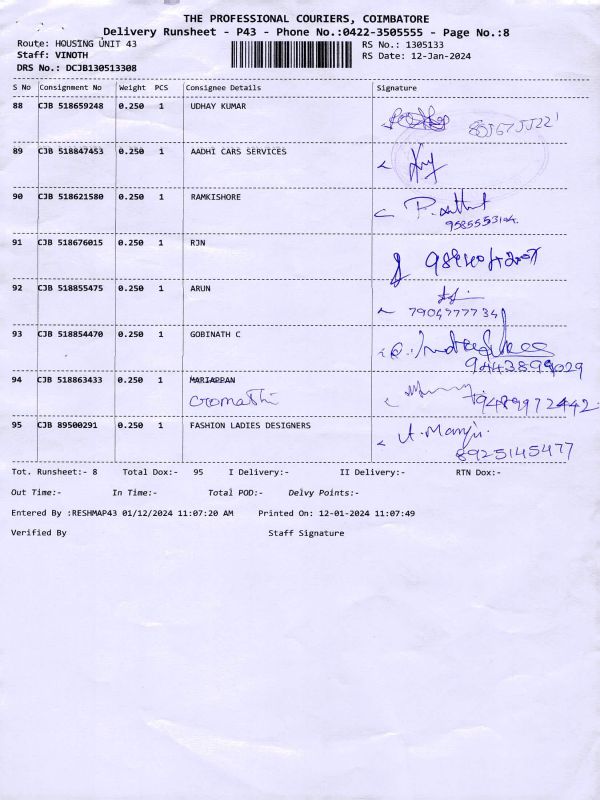 THE PROFESSIONAL COURIERS, COIMBATORE
Delivery Runsheet - P43 - Phone No.:0422-3505555 - Page No.:8
Route: HOUSING UNIT 43
RS No.: 1305133
Staff: VINOTH
RS Date: 12-Jan-2024
DRS No.: DCJB130513308
S No Consignment No Weight PCS Consignee Details Signature
88 CJB 518659248 0.250 1 UDHAY KUMAR
89 CJB 518847453 0.250 1 AADHI CARS SERVICES
90 CJB 518621580 0.250 1 RAMKISHORE
9585553104.
91 CJB 518676015 0.250 1 RJN
92 CJB 518855475 0.250 1 ARUN
7904777734
93 CJB 518854470 0.250 1 GOBINATH C
9443899029
94 CJB 518863433 0.250 1 MARIAPPAN
Gomathi
9489972442
95 CJB 89500291 0.250 1 FASHION LADIES DESIGNERS
A. Manju
8925145477
Tot. Runsheet:- 8 Total Dox:- 95 I Delivery:- II Delivery:- RTN Dox:-
Out Time:- In Time:- Total POD:- Delvy Points:-
Entered By :RESHMAP43 01/12/2024 11:07:20 AM Printed On: 12-01-2024 11:07:49
Verified By Staff Signature